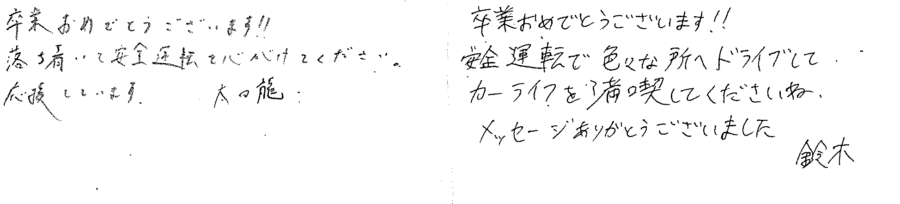 卒業おめでとうございます!!
落ち着いて安全運転を心がけてください。
応援しています。 太田龍
卒業おめでとうございます!!
安全運転で色々な所へドライブして
カーライフを満喫してくださいね。
メッセージありがとうございました
鈴木